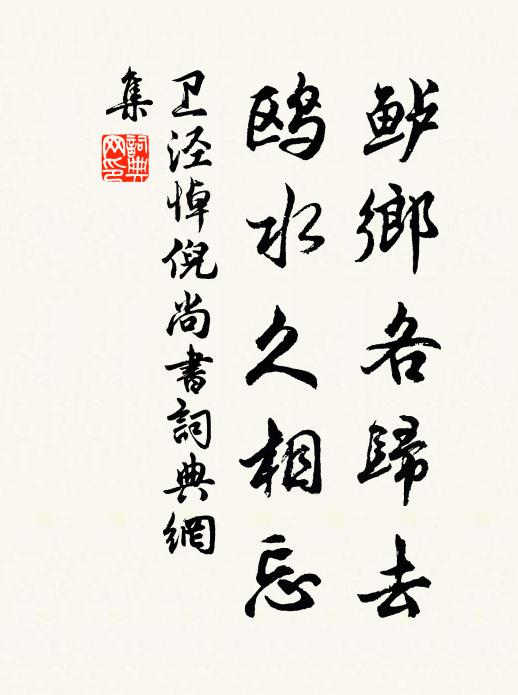 鲈鄉各歸去
鸥水久相忘
卫泾悼倪尚書詞典網
集
詞典
网印